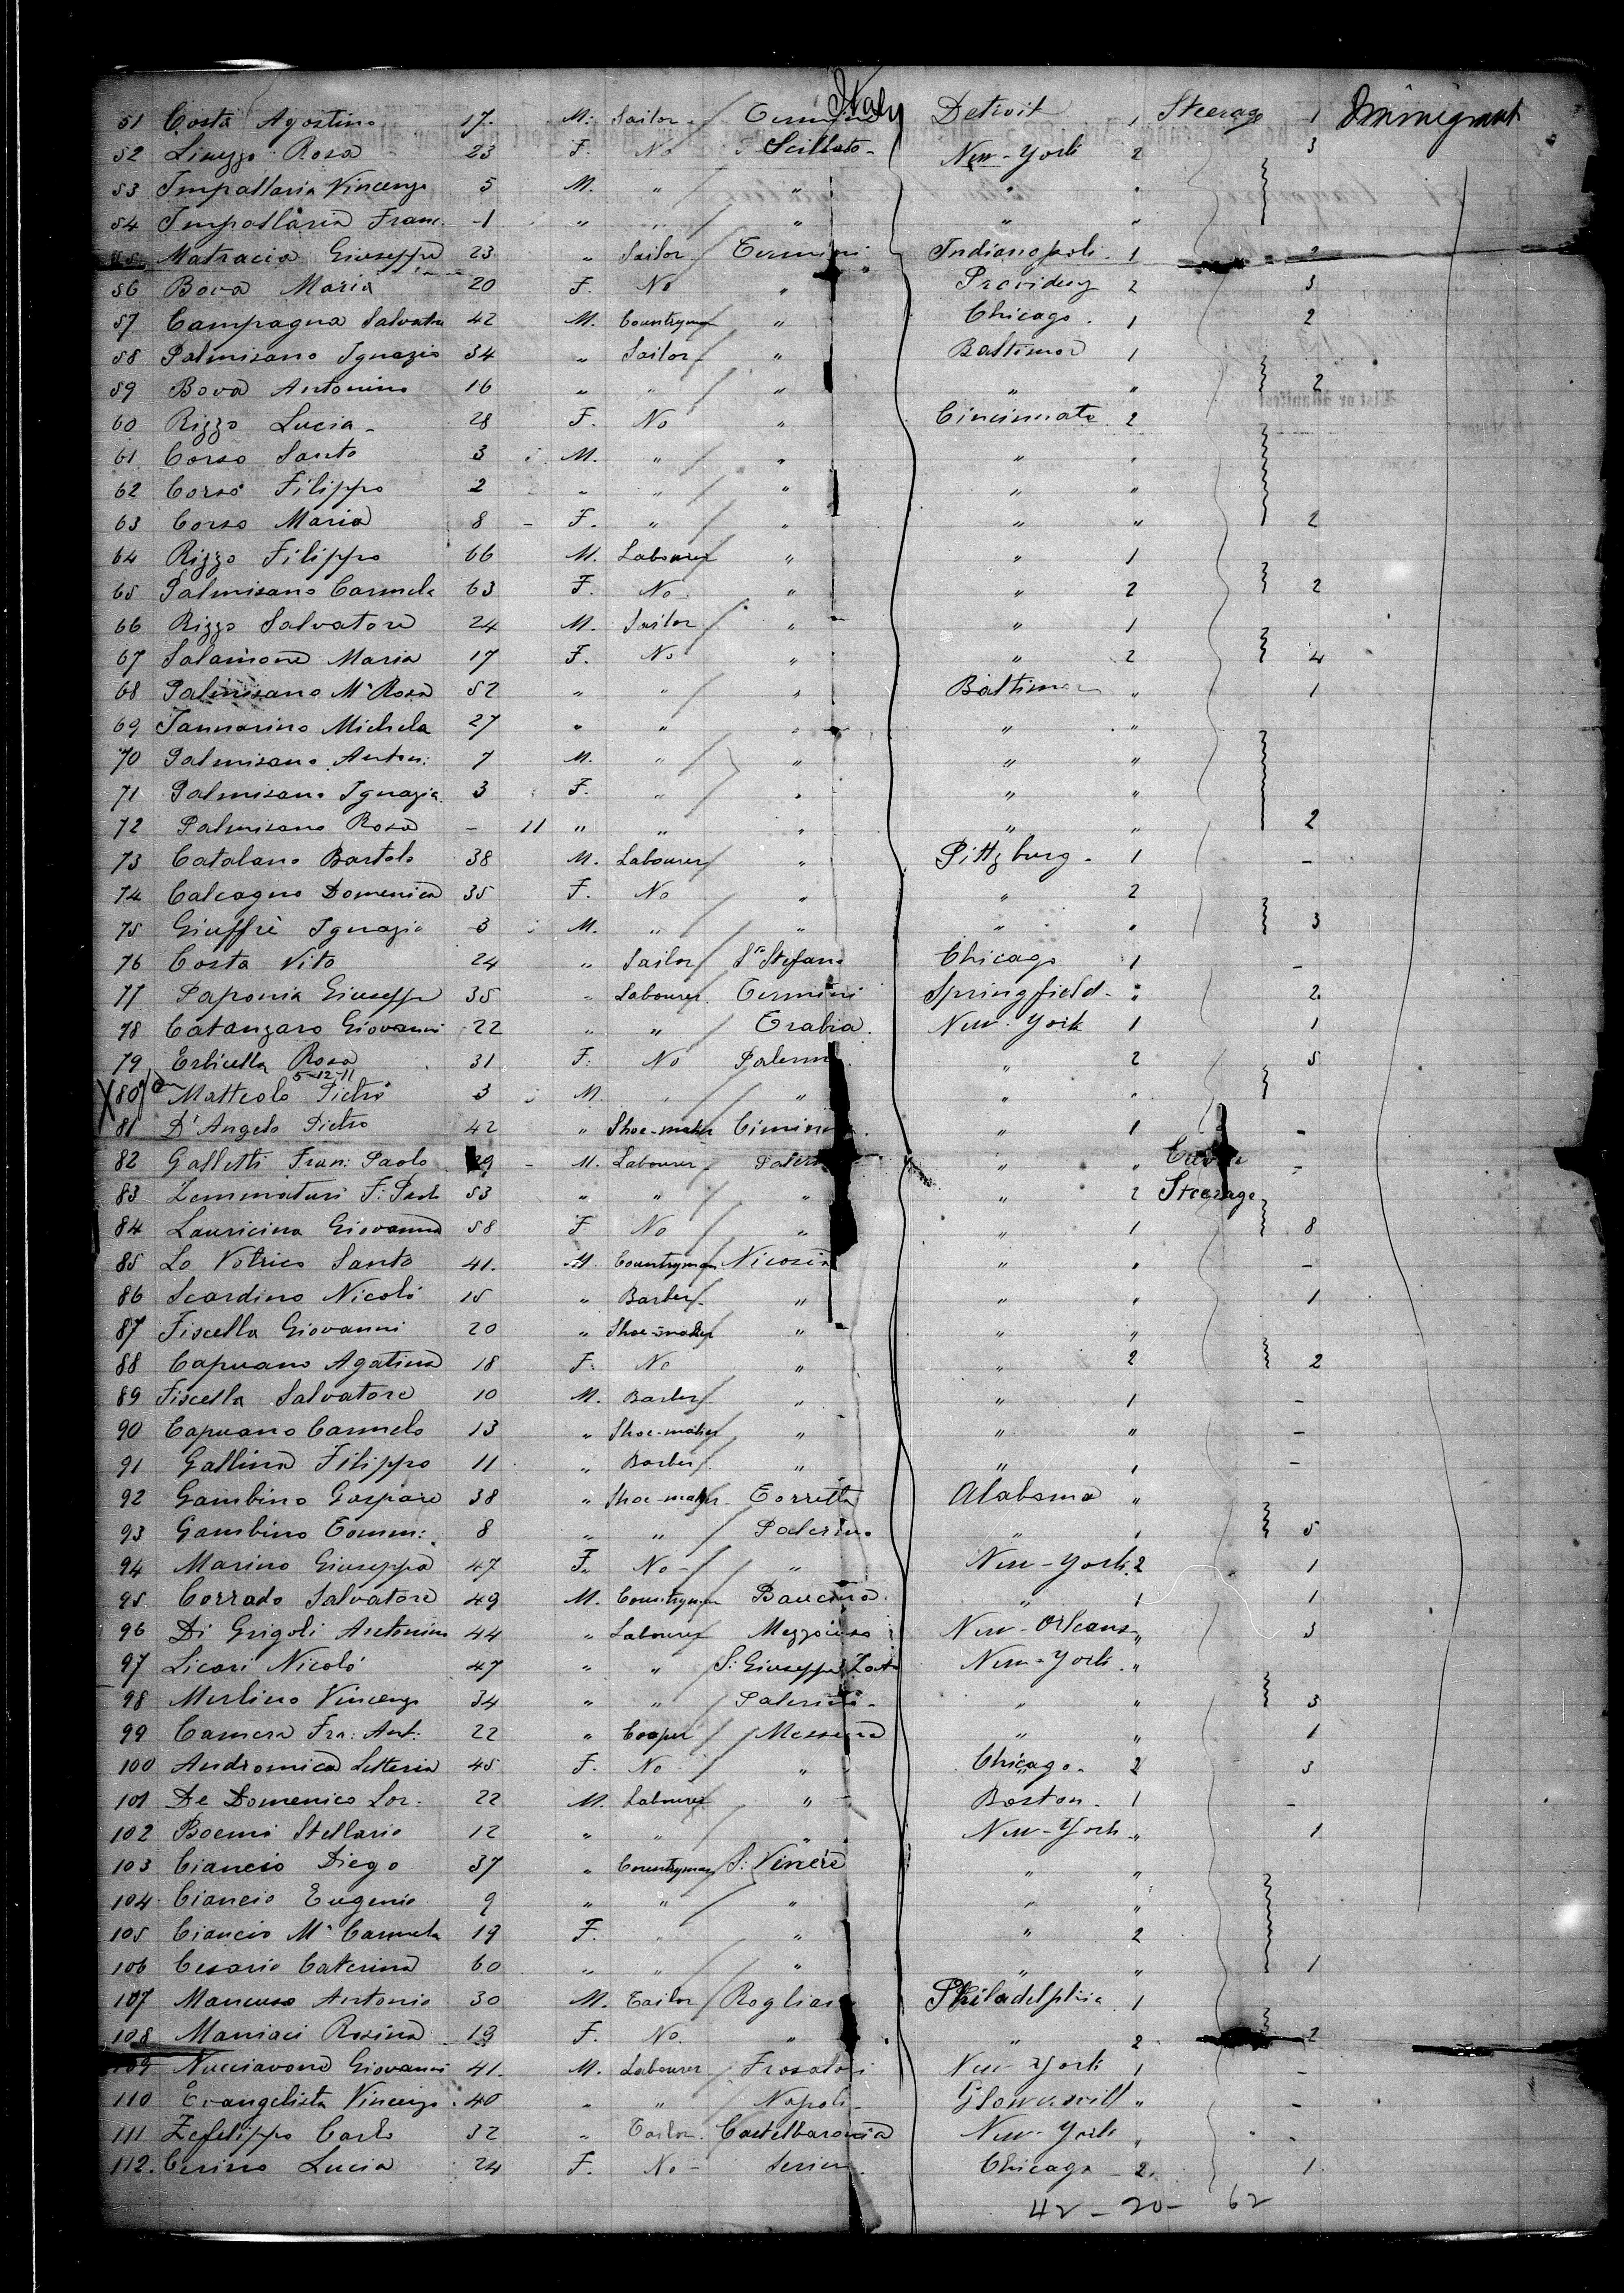 Italy
51 Costa Agostino 17. M. Sailor Termini Detroit 1 Steerage 1 Immigrant
52 Rosa 23 F. No Scillato - New-York 2 3
53 Impallaria Vincenzo 5 M. " " " "
54 Impallaria Franc. 1 " " " " "
55 Matracia Giuseppe 23 " Sailor Termini Indianopoli 1 2
56 Bova Maria 20 F. No " 2 3
57 Campagna Salvatre 42 M. Countryman " Chicago. 1 2
58 Palmisano Ignazio 34 " Sailor " Baltimor 1
59 Bova Antonino 16 " " " " " 2
60 Rizzo Lucia - 28 F. No " Cincinnato 2
61 Corso Santo 3 M. " " " "
62 Corso Filippo 2 " " " " "
63 Corso Maria 8 - F. " " " " 2
64 Rizzo Filippo 66 M. Labourer " " 1
65 Palmisano Carmela 63 F. No " " 2 2
66 Rizzo Salvatore 24 M. Sailor " " 1
67 Salamone Maria 17 F. No " " 2 4
68 Palmisano Mª Rosa 52 " " " Baltimor " 1
69 Iannarino Michela 27 " " " " "
70 Palmisano Anton: 7 M. " " " "
71 Palmisano Ignazia 3 F. " " " "
72 Palmisano Rosa - 11 " " " " " 2
73 Catalano Bartolo 38 M. Labourer " Pittzburg - 1 -
74 Calcagno Domenica 35 F. No " " 2
75 Giuffrè Ignazio 3 M. " " " " 3
76 Costa Vito 24 " Sailor Stefano Chicago 1 -
77 Paponia Giuseppe 35 " Labourer. Termini Springfield - " 2
78 Catanzaro Giovanni 22 " " Trabia. New-York 1 1
79 Erbicella Rosa 31 F. No Palermo " 2 5
5-12-11
X 80 Matteolo Pietro 3 M. " " " "
81 D'Angelo Pietro 42 " Shoe-maker Ciminna " 1 -
82 Galletti Fran: Paolo 29 - M. Labourer Palermo " " -
83 F: Paolo 53 " " " " 2 Steerage
84 Lauricina Giovanna 58 F No " " 1 8
85 Lo Votrico Santo 41. M. Countryman Nicosia " " -
86 Scardino Nicolò 15 " Barber - " " " 1
87 Fiscella Giovanni 20 " Shoe-maker " " "
88 Capuano Agatina 18 F. No " " 2 2
89 Fiscella Salvatore 10 M. Barber " " 1 -
90 Capuano Carmelo 13 " Shoe-maker " " " -
91 Gallina Filippo 11 " Barber " " 1 -
92 Gambino Gaspare 38 " Shoe-maker Torretta Alabama "
93 Gambino Tomm: 8 " " Palermo " 1 5
94 Marino Giuseppa 47 F. No - " New-York 2 1
95 Corrado Salvatore 49 M. Countryman Baucina. " 1 1
96 Di Grigoli Antonino 44 " Labourer Mezzoiuso New-Orleans " 3
97 Licari Nicolò 47 " " S: Giuseppe Jato New-York "
98 Merlino Vincenzo 34 " " Palermo - " " 3
99 Camera Fra: Ant: 22 " Cooper Messina " " 1
100 Andromica Letteria 45 F. No " Chicago. 2 3
101 De Domenico Lor: 22 M. Labourer " Boston. 1 -
102 Boemi Stellario 12 " " " New-York " 1
103 Ciancio Diego 37 " Countryman S: Venere " "
104 Ciancio Eugenio 9 " " " " "
105 Ciancio Mª Carmela 19 F. " " " 2
106 Cesario Caterina 60 " " " " " 1
107 Mancuso Antonio 30 M. Tailor Rogliano Philadelphia 1
108 Maniaci Rosina 19 F. No. " " 2 2
109 Nucciavone Giovanni 41. M. Labourer New York 1 -
110 Evangelista Vincenzo 40 " " Napoli - " -
111 Zefelippo Carlo 32 " Tailor. Castelbaronia New-York " -
112. Cerino Lucia 24 F. No - Chicago 2. 1
42 - 20 - 62